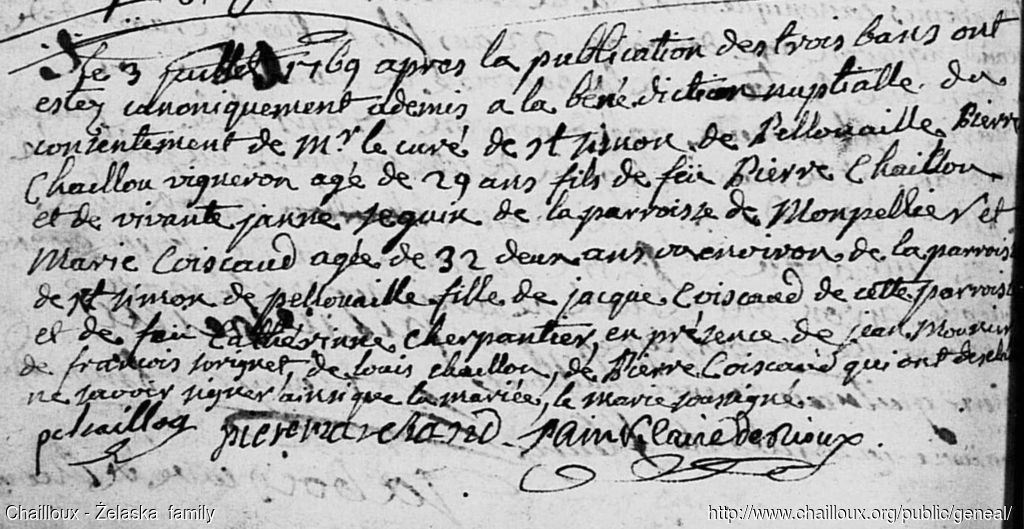 Le 3 juillet 1769 apres la publication des trois bans ont
estez canoniquement admis a la bénédiction nuptialle du
consentement de Mr. le curé de st simon de Pellouaille Pierre
Chaillou vigneron agé de 29 ans fils de feü Pierre Chaillou
et de vivante janne Seguin de la parroisse de Monpellier et
Marie Coiscaud agée de 32 deux ans ou environ de la parroisse
de st simon de pellouaille fille de jacque Coiscaud de cette parroisse
et de feü Cathérinne Cherpantier, en présence de jean
de francois de Louis chaillou, de Pierre Coiscaud qui ont declaré
ne savoir signer ainsi que la mariée, le marie soussigné.
pchaillou pierre marchand Saint Claire de Rioux.
Chailloux - Żelaska family
http://www.chailloux.org/public/geneal/